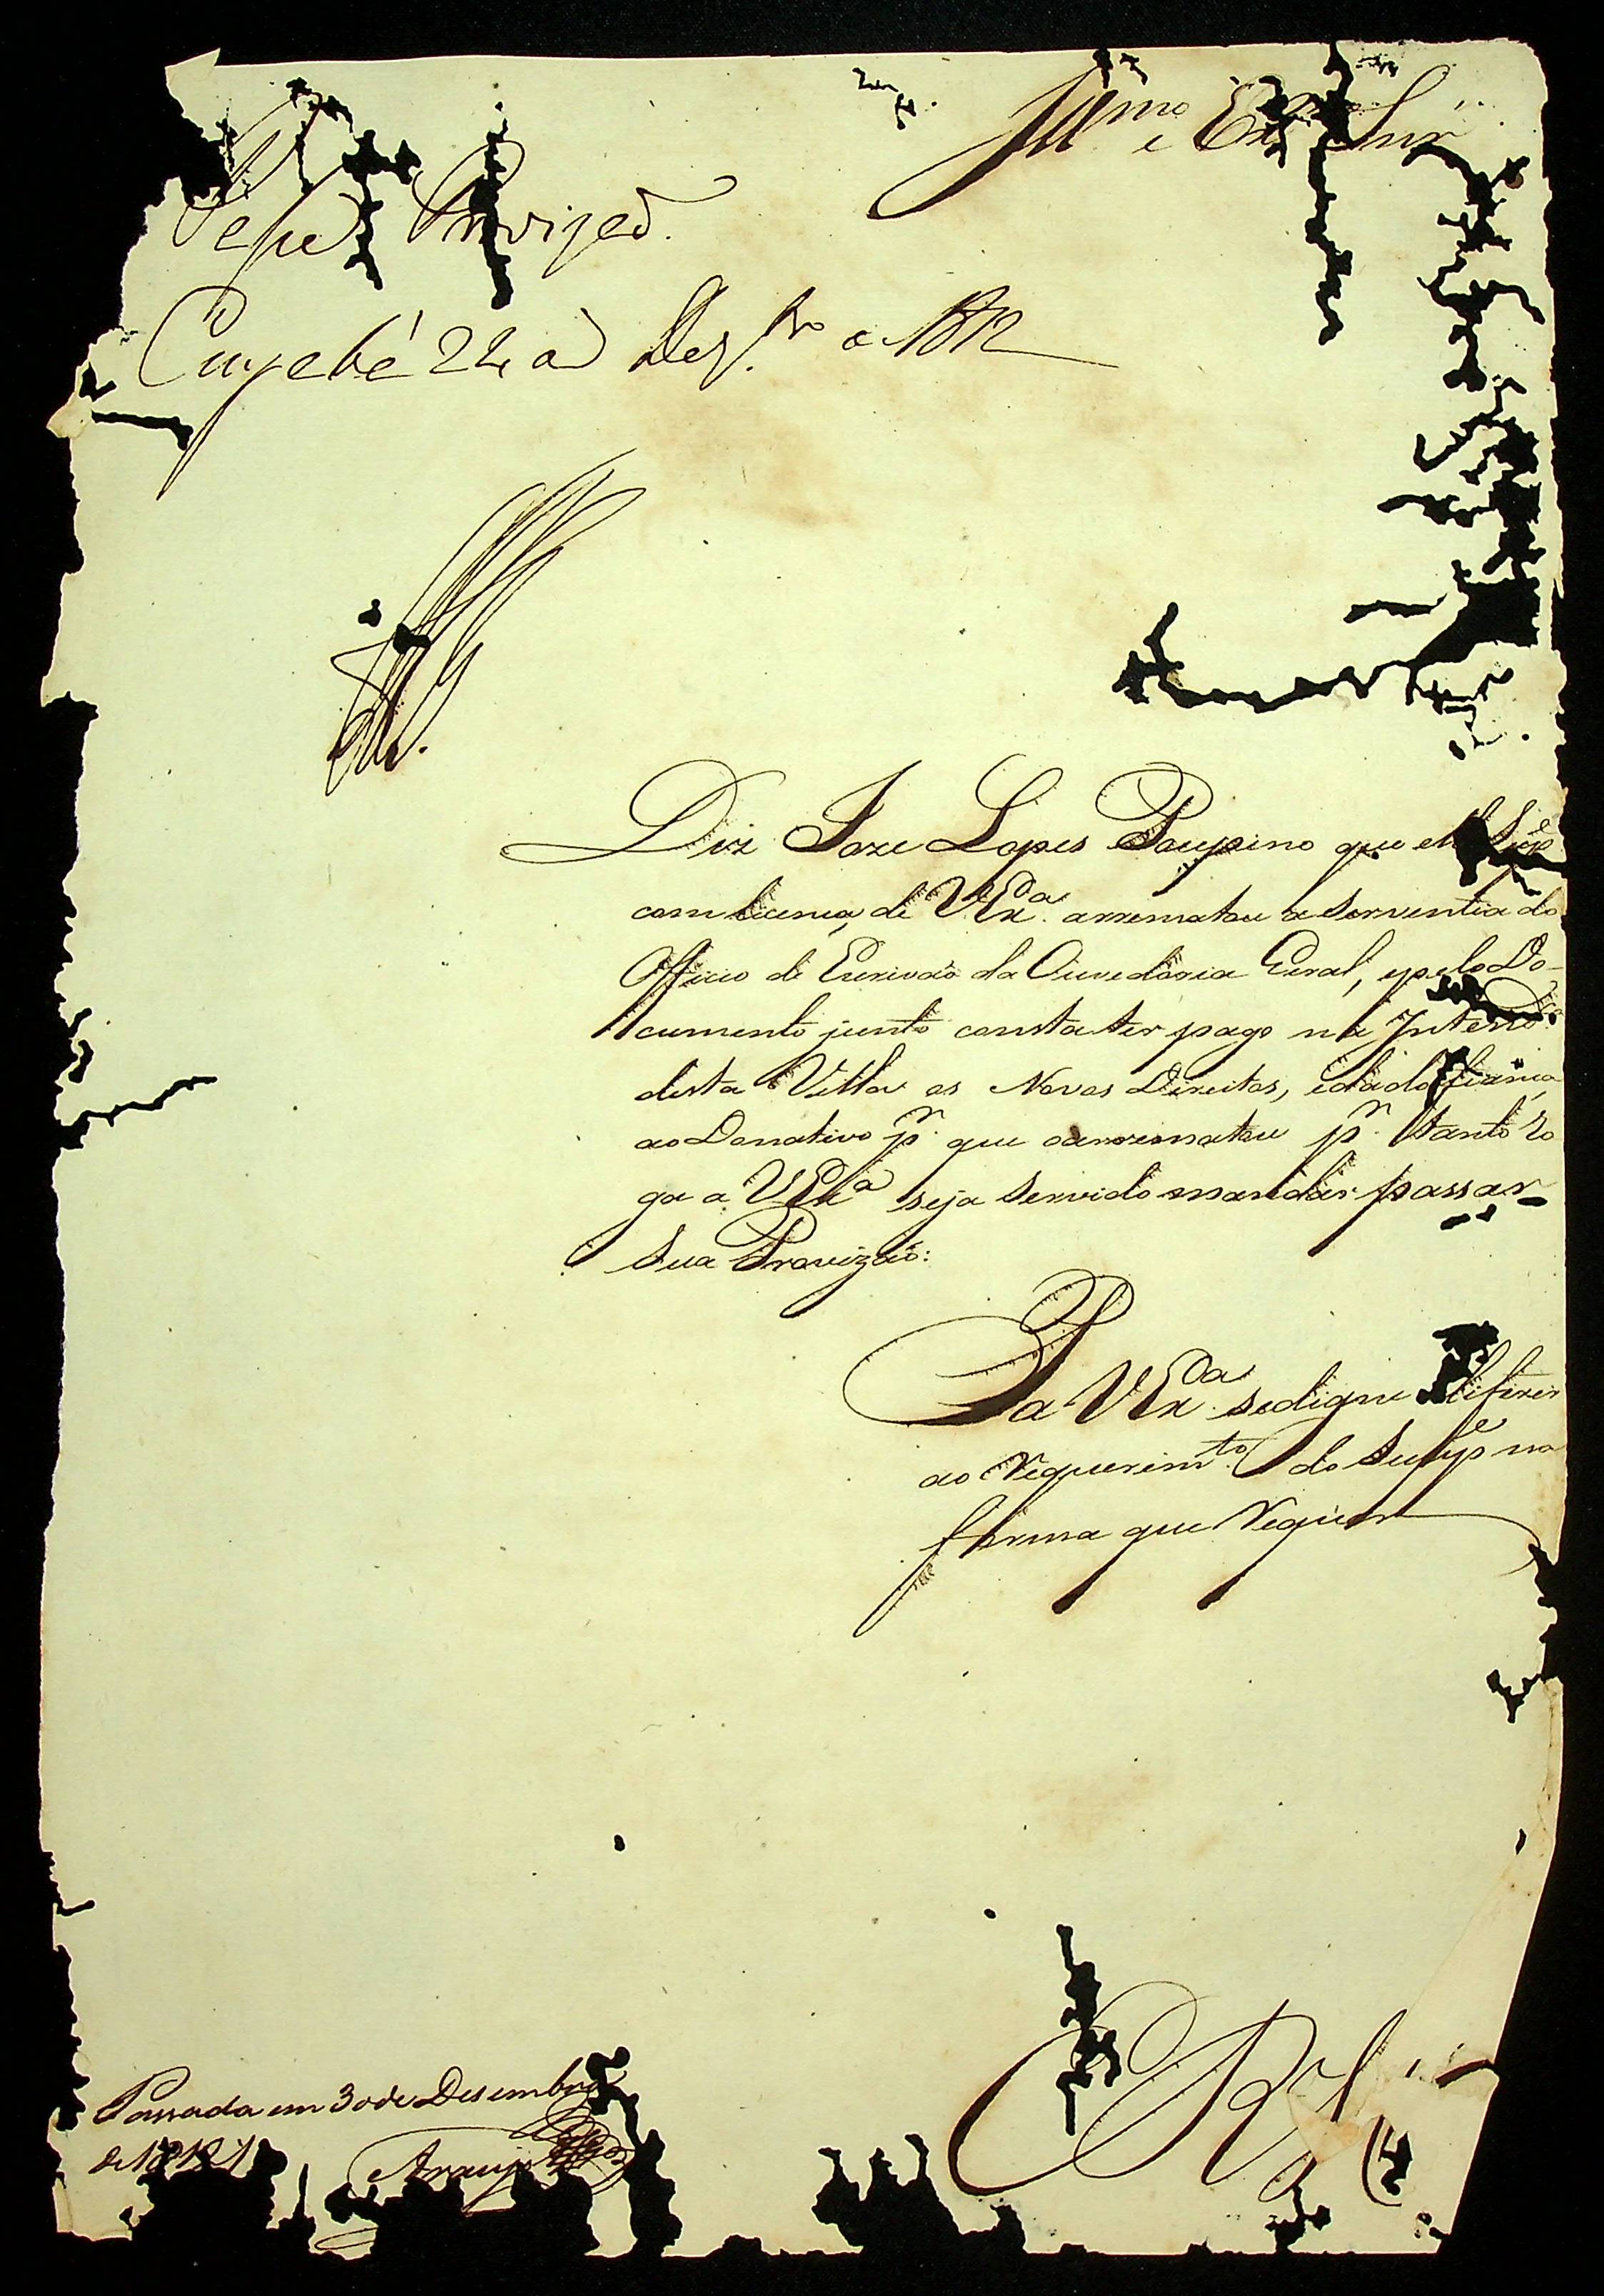 Illmo e Exmo Snr
Pase Provizaõ.
Cuyabá 24 de Dezbro de 1812
Diz Joze Lopes Paupino que elle Supe
com licença, de VExa. arrematou a Serventia do
Officio de Escrivaõ da Ouvedoria Geral, e pelo Do-
cumento junto consta ter pago na
desta Villa os Novos Direitos, e dado fiança
ao Donativo pr. que o arrematou pr. tanto Ro
ga a VExa seja Servido mandar passar
Sua Provizaõ:
Pa VExa. se digne diferir
ao Requerimto. do Supe na
forma que Requer
Passada em 30 de Desembro
de 1812
Araujo